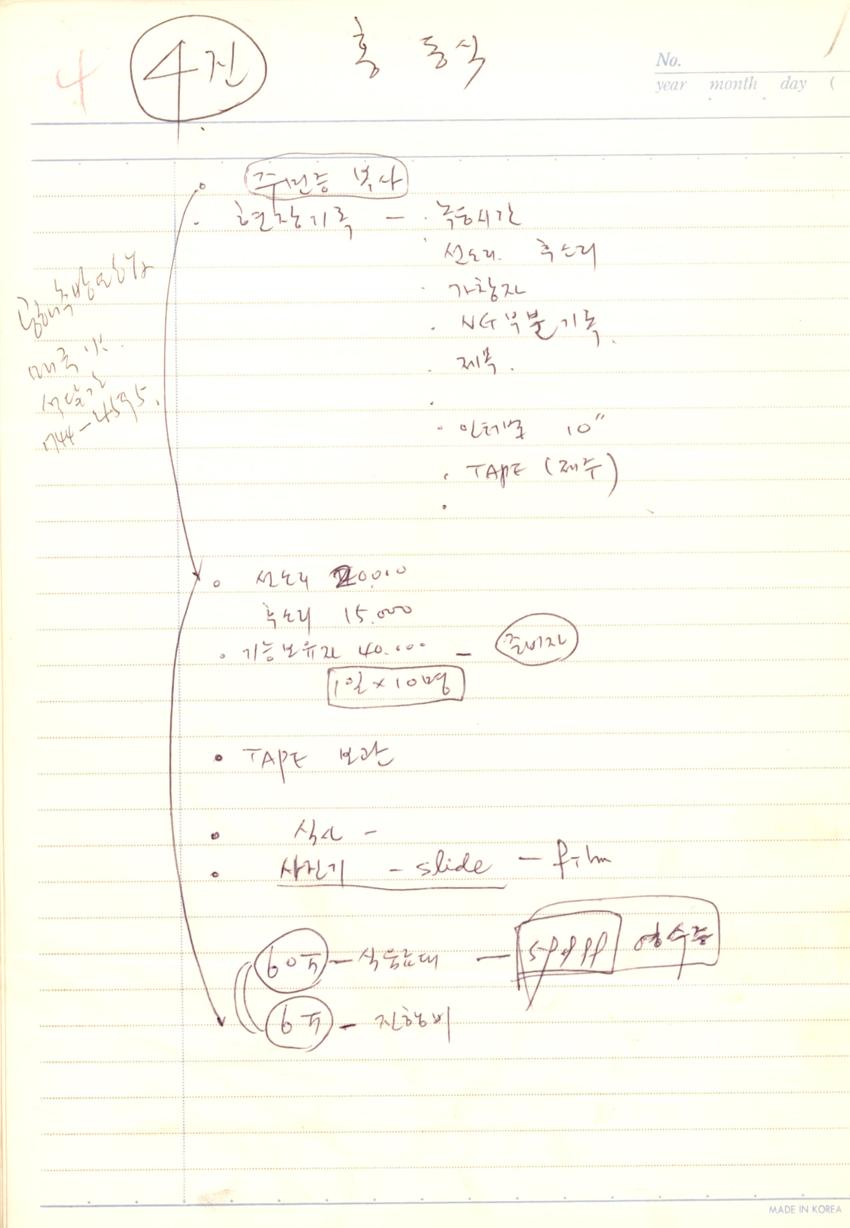 4
4진
홍 동식
No.
year month day (
주민증 복사
현장기록 - 녹음시간
선소리. 후소리
가창자
NG부분기록.
제목.
인테벌 10"
TAPE (제주)
744-4595.
선소리 20.000
후소리 15.000
기능보유자 40.000 - 준비자
1일×10명
TAPE 보관
식사 -
사진기 - slide - film
60만 - 식음료대 - 영수증
6만 - 진행비
MADE IN KOREA